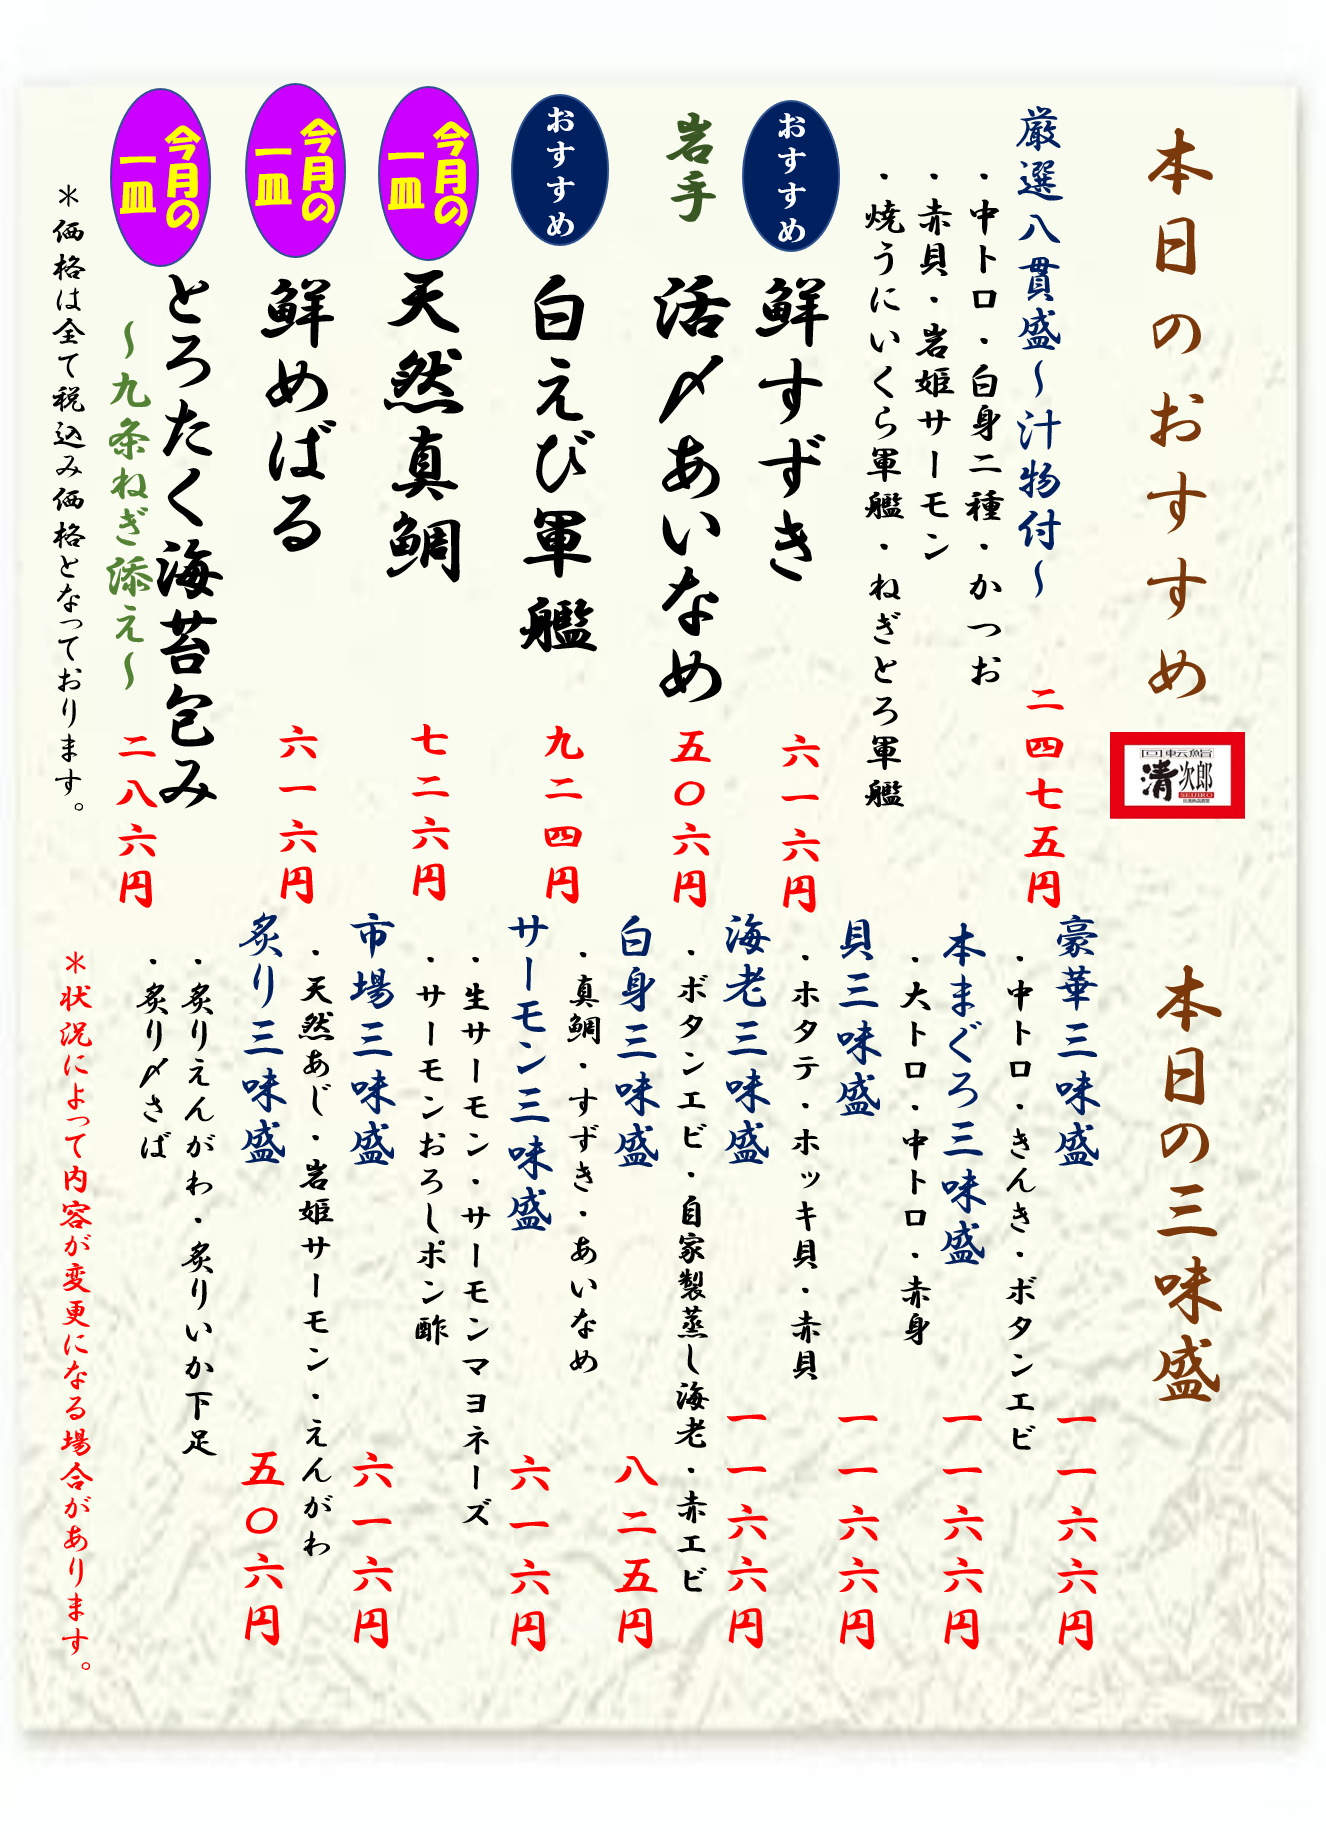 本日のおすすめ
回転鮨
清次郎
SEIJIRO
厳選八貫盛～汁物付～
二四七五円
・中トロ・白身二種・かつお
・赤貝・岩姫サーモン
・焼うにいくら軍艦・ねぎとろ軍艦
おすすめ
鮮すずき
六一六円
岩手
活〆あいなめ
五〇六円
おすすめ
白えび軍艦
九二四円
今月の
一皿
天然真鯛
七二六円
今月の
一皿
鮮めばる
六一六円
今月の
一皿
とろたく海苔包み
～九条ねぎ添え～
二八六円
＊価格は全て税込み価格となっております。
本日の三味盛
豪華三味盛
一一六六円
・中トロ・きんき・ボタンエビ
本まぐろ三味盛
一一六六円
・大トロ・中トロ・赤身
貝三味盛
一一六六円
・ホタテ・ホッキ貝・赤貝
海老三味盛
一一六六円
・ボタンエビ・自家製蒸し海老・赤エビ
白身三味盛
八二五円
・真鯛・すずき・あいなめ
サーモン三味盛
六一六円
・生サーモン・サーモンマヨネーズ
・サーモンおろしポン酢
市場三味盛
六一六円
・天然あじ・岩姫サーモン・えんがわ
炙り三味盛
五〇六円
・炙りえんがわ・炙りいか下足
・炙り〆さば
＊状況によって内容が変更になる場合があります。